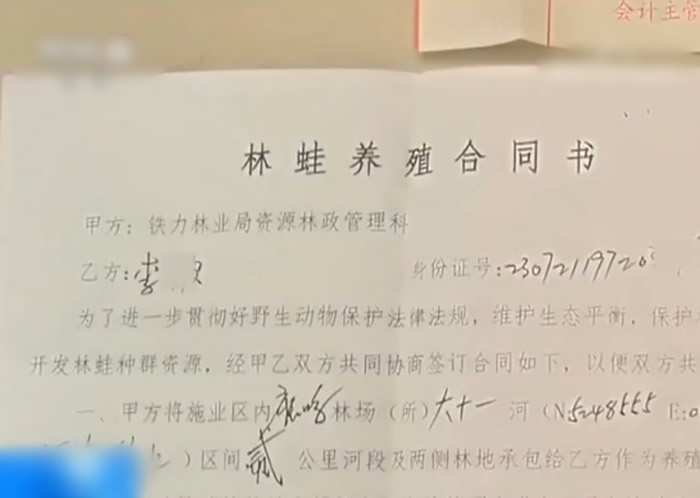 会计主管
林蛙养殖合同书
甲方：铁力林业局资源林政管理科
乙方：李 身份证号：2307211972
为了进一步贯彻好野生动物保护法律法规，维护生态平衡，保护
开发林蛙种群资源，经甲乙双方共同协商签订合同如下，以便双方共
一、甲方将施业区内 林场（所）六十一 河（N5248555 E:0
）区间 贰 公里河段及两侧林地承包给乙方作为养殖